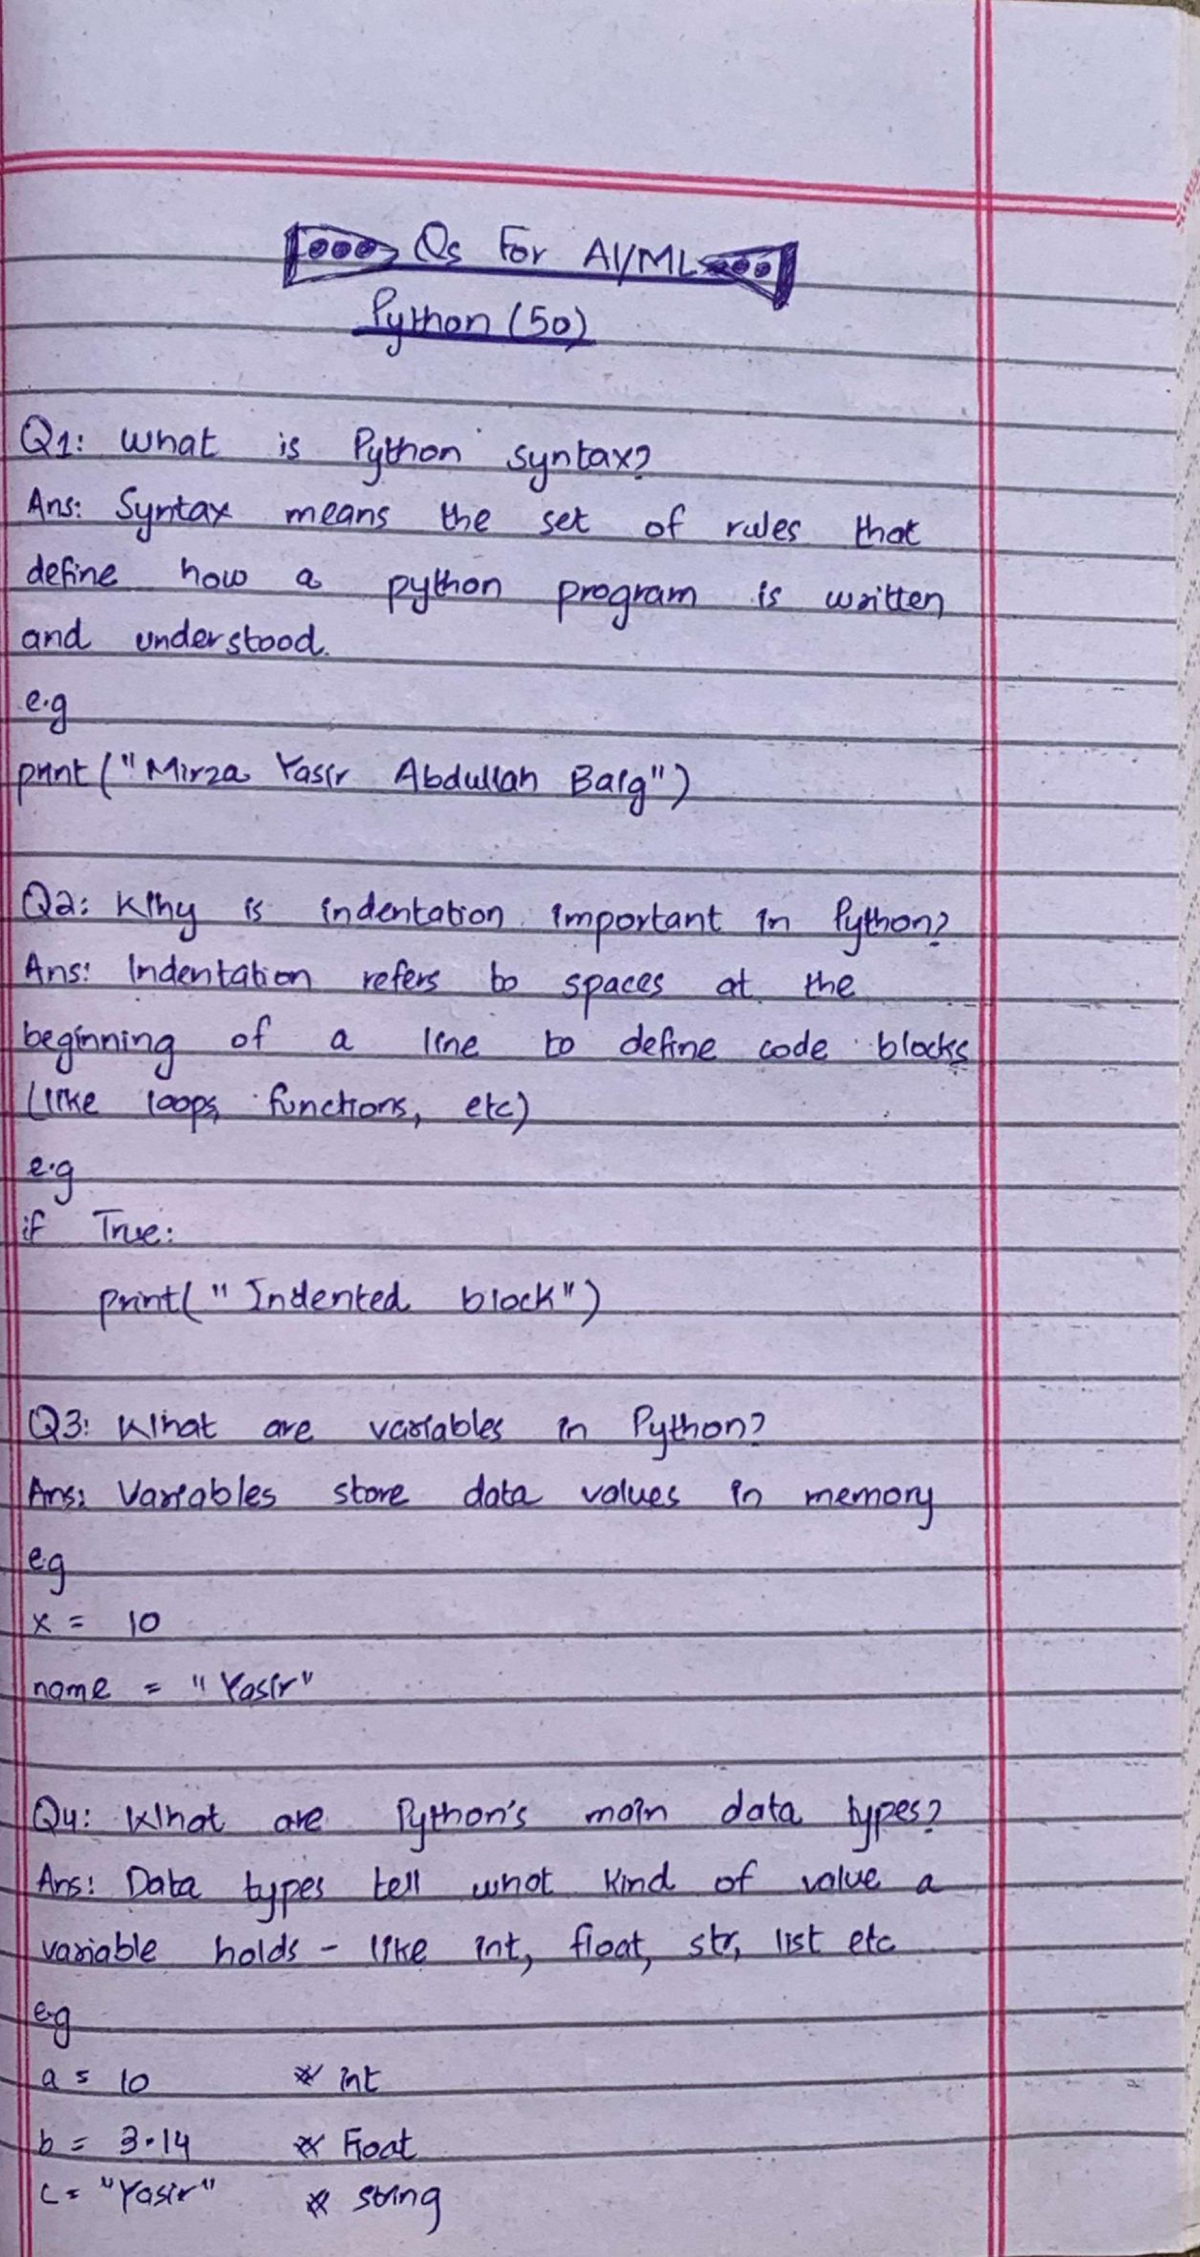 Qs For AI/ML
Python (50)
Q1: What is Python syntax?
Ans: Syntax means the set of rules that
define how a python program is written
and understood.
e.g
print ("Mirza Yasir Abdullah Baig")
Q2: Why is indentation important in Python?
Ans: Indentation refers to spaces at the
beginning of a line to define code blocks
(like loops, functions, etc)
e.g
if True:
print(" Indented block")
Q3: What are variables in Python?
Ans: Variables store data values in memory
eg
x = 10
name = "Yasir"
Q4: What are Python's main data types?
Ans: Data types tell what kind of value a
variable holds - like int, float, str, list etc
e.g
a = 10 * int
b = 3.14 * Float
c = "Yasir" * string